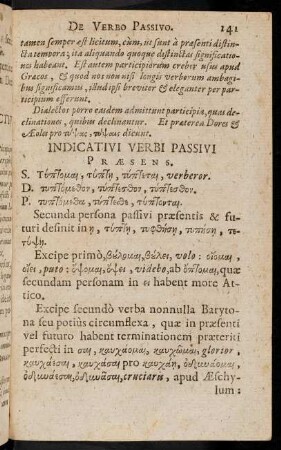 DE VERBO PASSIVO. 141
tamen semper est licitum, cùm, ut sunt à præsenti distin-
cta tempora; ita aliquando quoque distinctas significatio-
nes habeant. Est autem participiorum creber usus apud
Græcos, & quod nos non nisi longis verborum ambagi-
bus significamus, id ipsi breviter & eleganter per par-
ticipium efferunt.
Dialectos porro easdem admittunt participia, quas de-
clinationes, quibus declinantur. Et præterea Dores &
Æoles pro τύψας, τύψαις dicunt.
INDICATIVI VERBI PASSIVI
PRÆSENS.
S. Τύπτομαι, τύπτῃ, τύπτεται, verberor.
D. τυπτόμεθον, τύπτεσθον, τύπτεσθον.
P. τυπτόμεθα, τύπτεσθε, τύπτονται.
Secunda persona passivi præsentis & fu-
turi desinit in ῃ, τύπτῃ, τυφθήσῃ, τυπήσῃ, τε-
τύψῃ.
Excipe primò, βούλομαι, βούλει, volo: οἴομαι,
οἴει, puto: ὄψομαι, ὄψει, videbo, ab ὄπτομαι, quæ
secundam personam in ει habent more At-
tico.
Excipe secundò verba nonnulla Baryto-
na seu potiùs circumflexa, quæ in præsenti
vel futuro habent terminationem præteriti
perfecti in σαι, καυχάομαι, καυχῶμαι, glorior,
καυχάεσαι, καυχᾶσαι pro καυχᾴη, ὀδυνάομαι,
ὀδυνάεσαι, ὀδυνᾶσαι, cruciaris, apud Æschy-
lum: